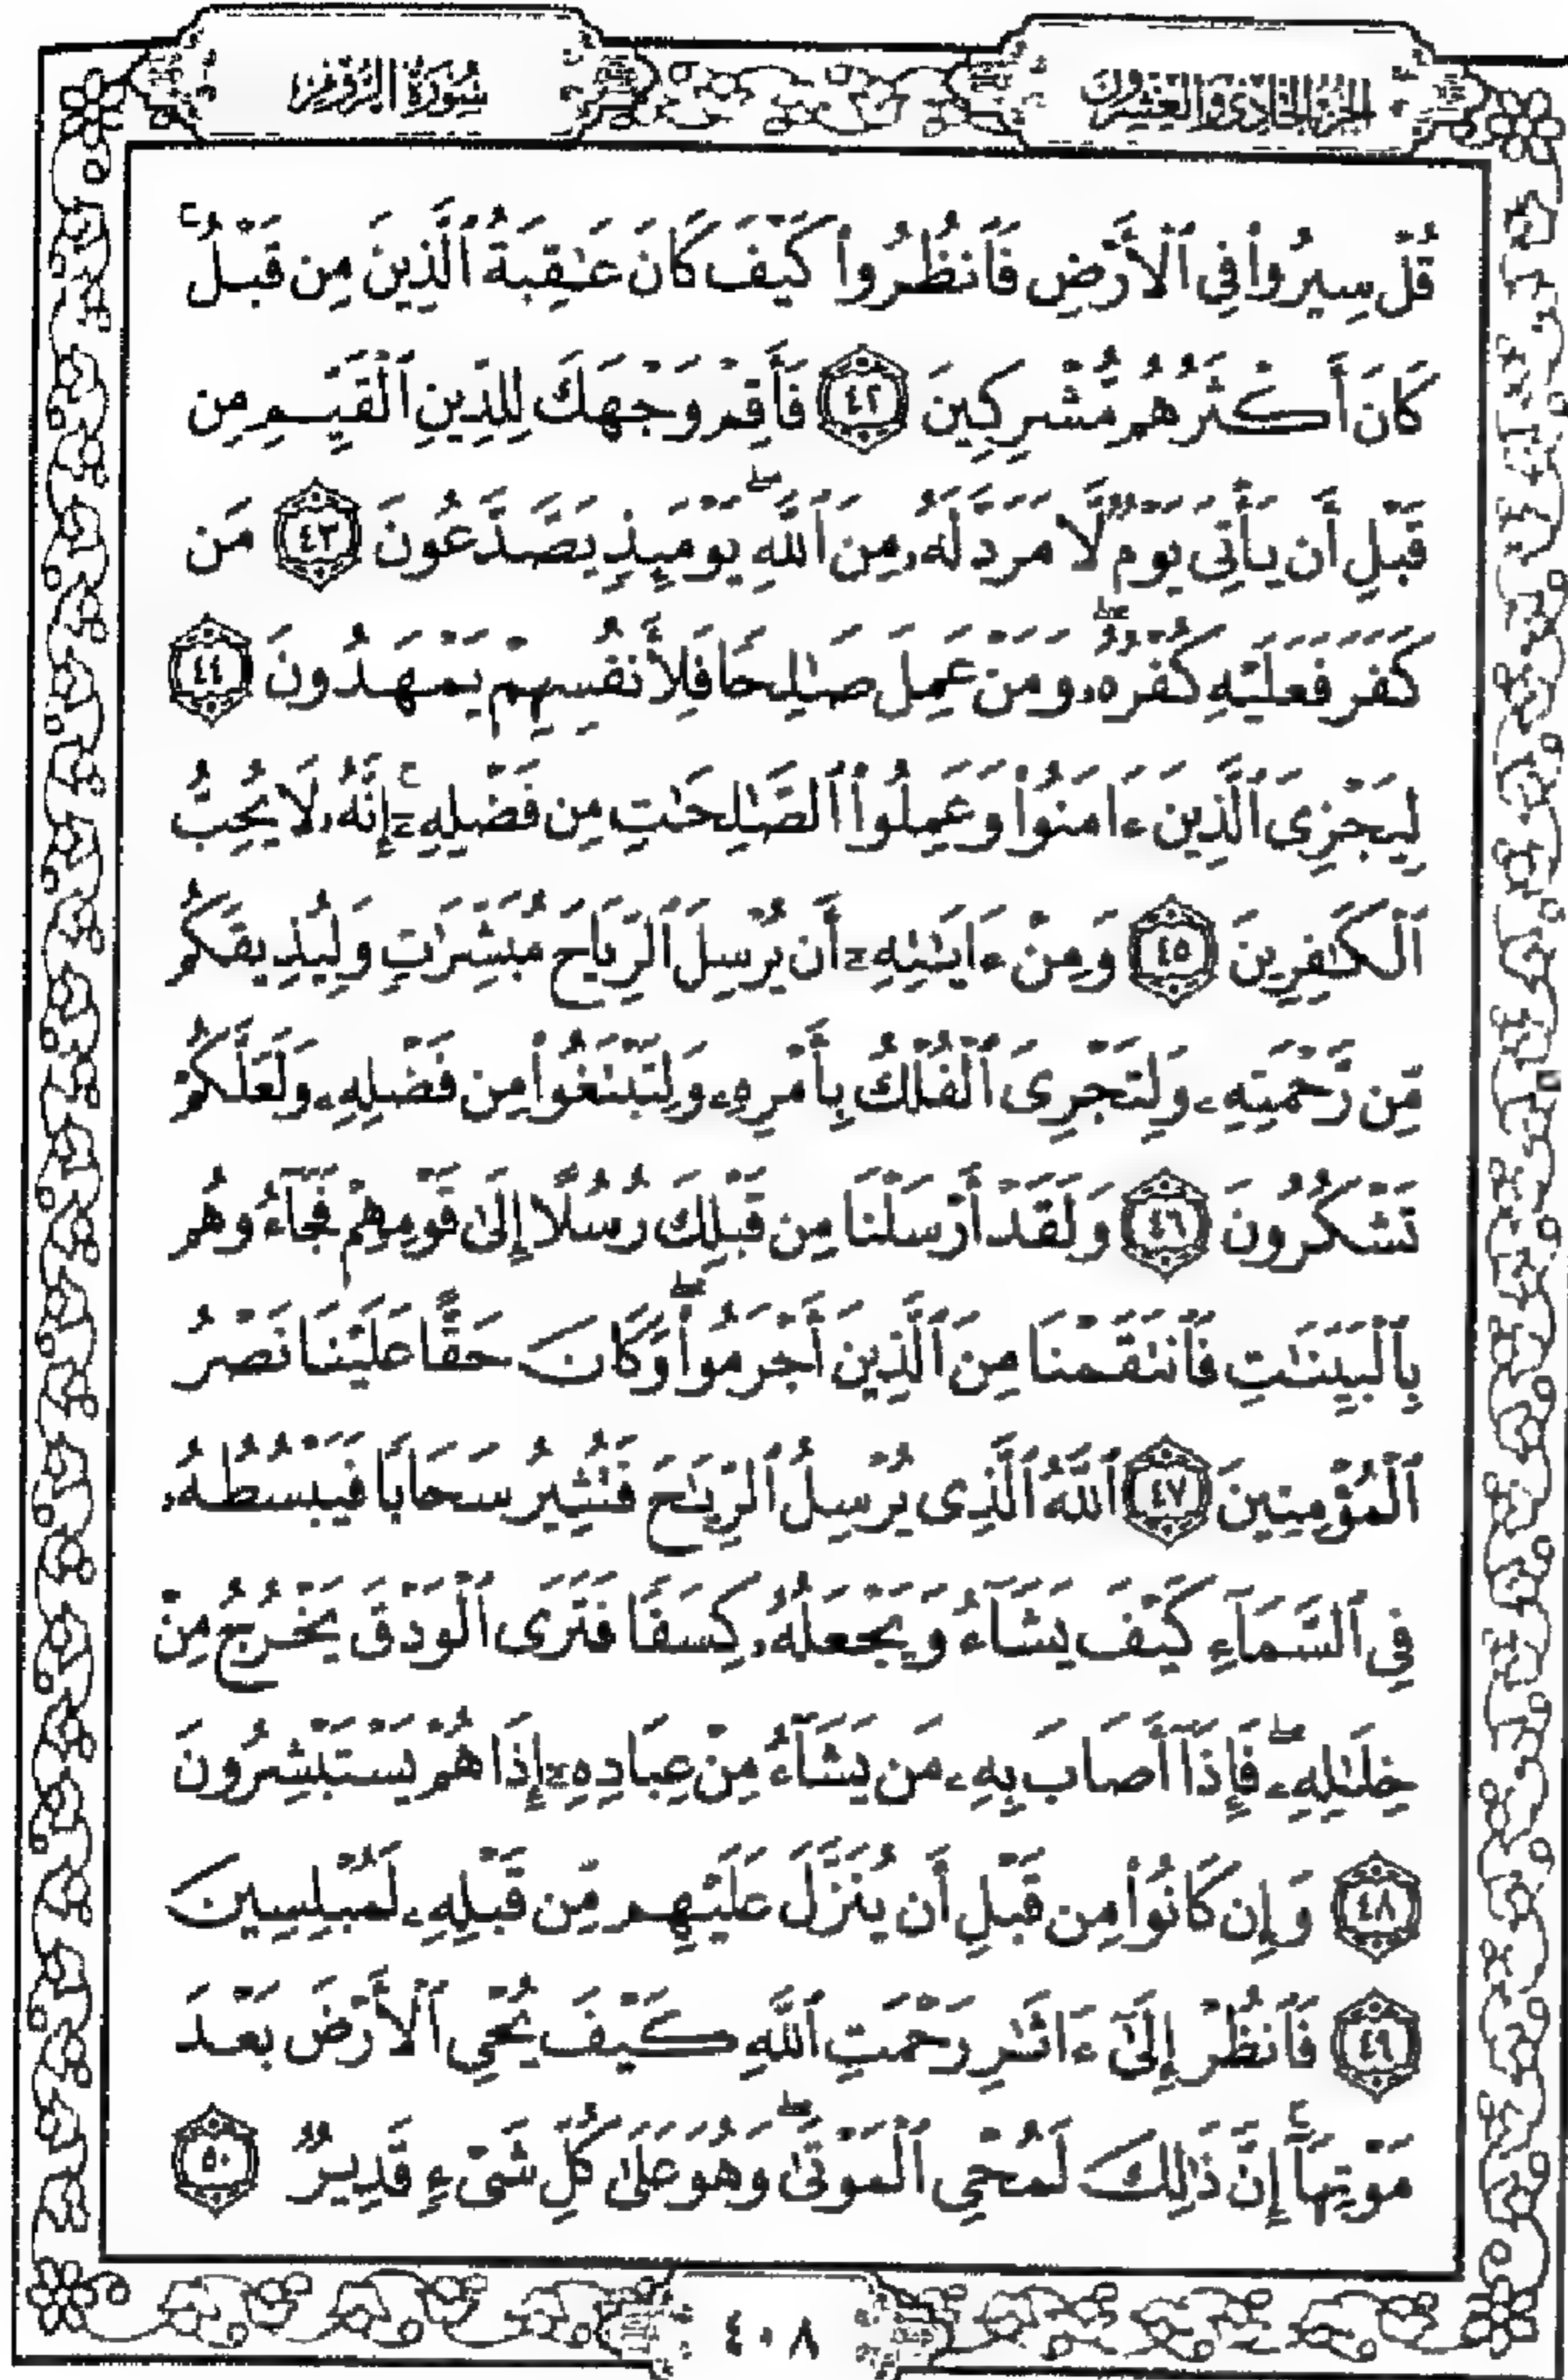 الجزء الحادي والعشرون
سورة الروم
قُلْ سِيرُواْ فِي ٱلْأَرْضِ فَٱنظُرُواْ كَيْفَ كَانَ عَٰقِبَةُ ٱلَّذِينَ مِن قَبْلُۚ
كَانَ أَكْثَرُهُم مُّشْرِكِينَ ٤٢ فَأَقِمْ وَجْهَكَ لِلدِّينِ ٱلْقَيِّمِ مِن
قَبْلِ أَن يَأْتِىَ يَوْمٌ لَّا مَرَدَّ لَهُۥ مِنَ ٱللَّهِۖ يَوْمَئِذٍ يَصَّدَّعُونَ ٤٣ مَن
كَفَرَ فَعَلَيْهِ كُفْرُهُۥۖ وَمَنْ عَمِلَ صَٰلِحًا فَلِأَنفُسِهِمْ يَمْهَدُونَ ٤٤
لِيَجْزِىَ ٱلَّذِينَ ءَامَنُواْ وَعَمِلُواْ ٱلصَّٰلِحَٰتِ مِن فَضْلِهِۦٓۚ إِنَّهُۥ لَا يُحِبُّ
ٱلْكَٰفِرِينَ ٤٥ وَمِنْ ءَايَٰتِهِۦٓ أَن يُرْسِلَ ٱلرِّيَاحَ مُبَشِّرَٰتٍ وَلِيُذِيقَكُم
مِّن رَّحْمَتِهِۦ وَلِتَجْرِىَ ٱلْفُلْكُ بِأَمْرِهِۦ وَلِتَبْتَغُواْ مِن فَضْلِهِۦ وَلَعَلَّكُمْ
تَشْكُرُونَ ٤٦ وَلَقَدْ أَرْسَلْنَا مِن قَبْلِكَ رُسُلًا إِلَىٰ قَوْمِهِمْ فَجَآءُوهُم
بِٱلْبَيِّنَٰتِ فَٱنتَقَمْنَا مِنَ ٱلَّذِينَ أَجْرَمُواْۖ وَكَانَ حَقًّا عَلَيْنَا نَصْرُ
ٱلْمُؤْمِنِينَ ٤٧ ٱللَّهُ ٱلَّذِى يُرْسِلُ ٱلرِّيَٰحَ فَتُثِيرُ سَحَابًا فَيَبْسُطُهُۥ
فِى ٱلسَّمَآءِ كَيْفَ يَشَآءُ وَيَجْعَلُهُۥ كِسَفًا فَتَرَى ٱلْوَدْقَ يَخْرُجُ مِنْ
خِلَٰلِهِۦۖ فَإِذَآ أَصَابَ بِهِۦ مَن يَشَآءُ مِنْ عِبَادِهِۦٓ إِذَا هُمْ يَسْتَبْشِرُونَ
٤٨ وَإِن كَانُواْ مِن قَبْلِ أَن يُنَزَّلَ عَلَيْهِم مِّن قَبْلِهِۦ لَمُبْلِسِينَ
٤٩ فَٱنظُرْ إِلَىٰٓ ءَاثَٰرِ رَحْمَتِ ٱللَّهِ كَيْفَ يُحْىِ ٱلْأَرْضَ بَعْدَ
مَوْتِهَآۚ إِنَّ ذَٰلِكَ لَمُحْىِ ٱلْمَوْتَىٰۖ وَهُوَ عَلَىٰ كُلِّ شَىْءٍ قَدِيرٌ ٥٠
٤٠٨